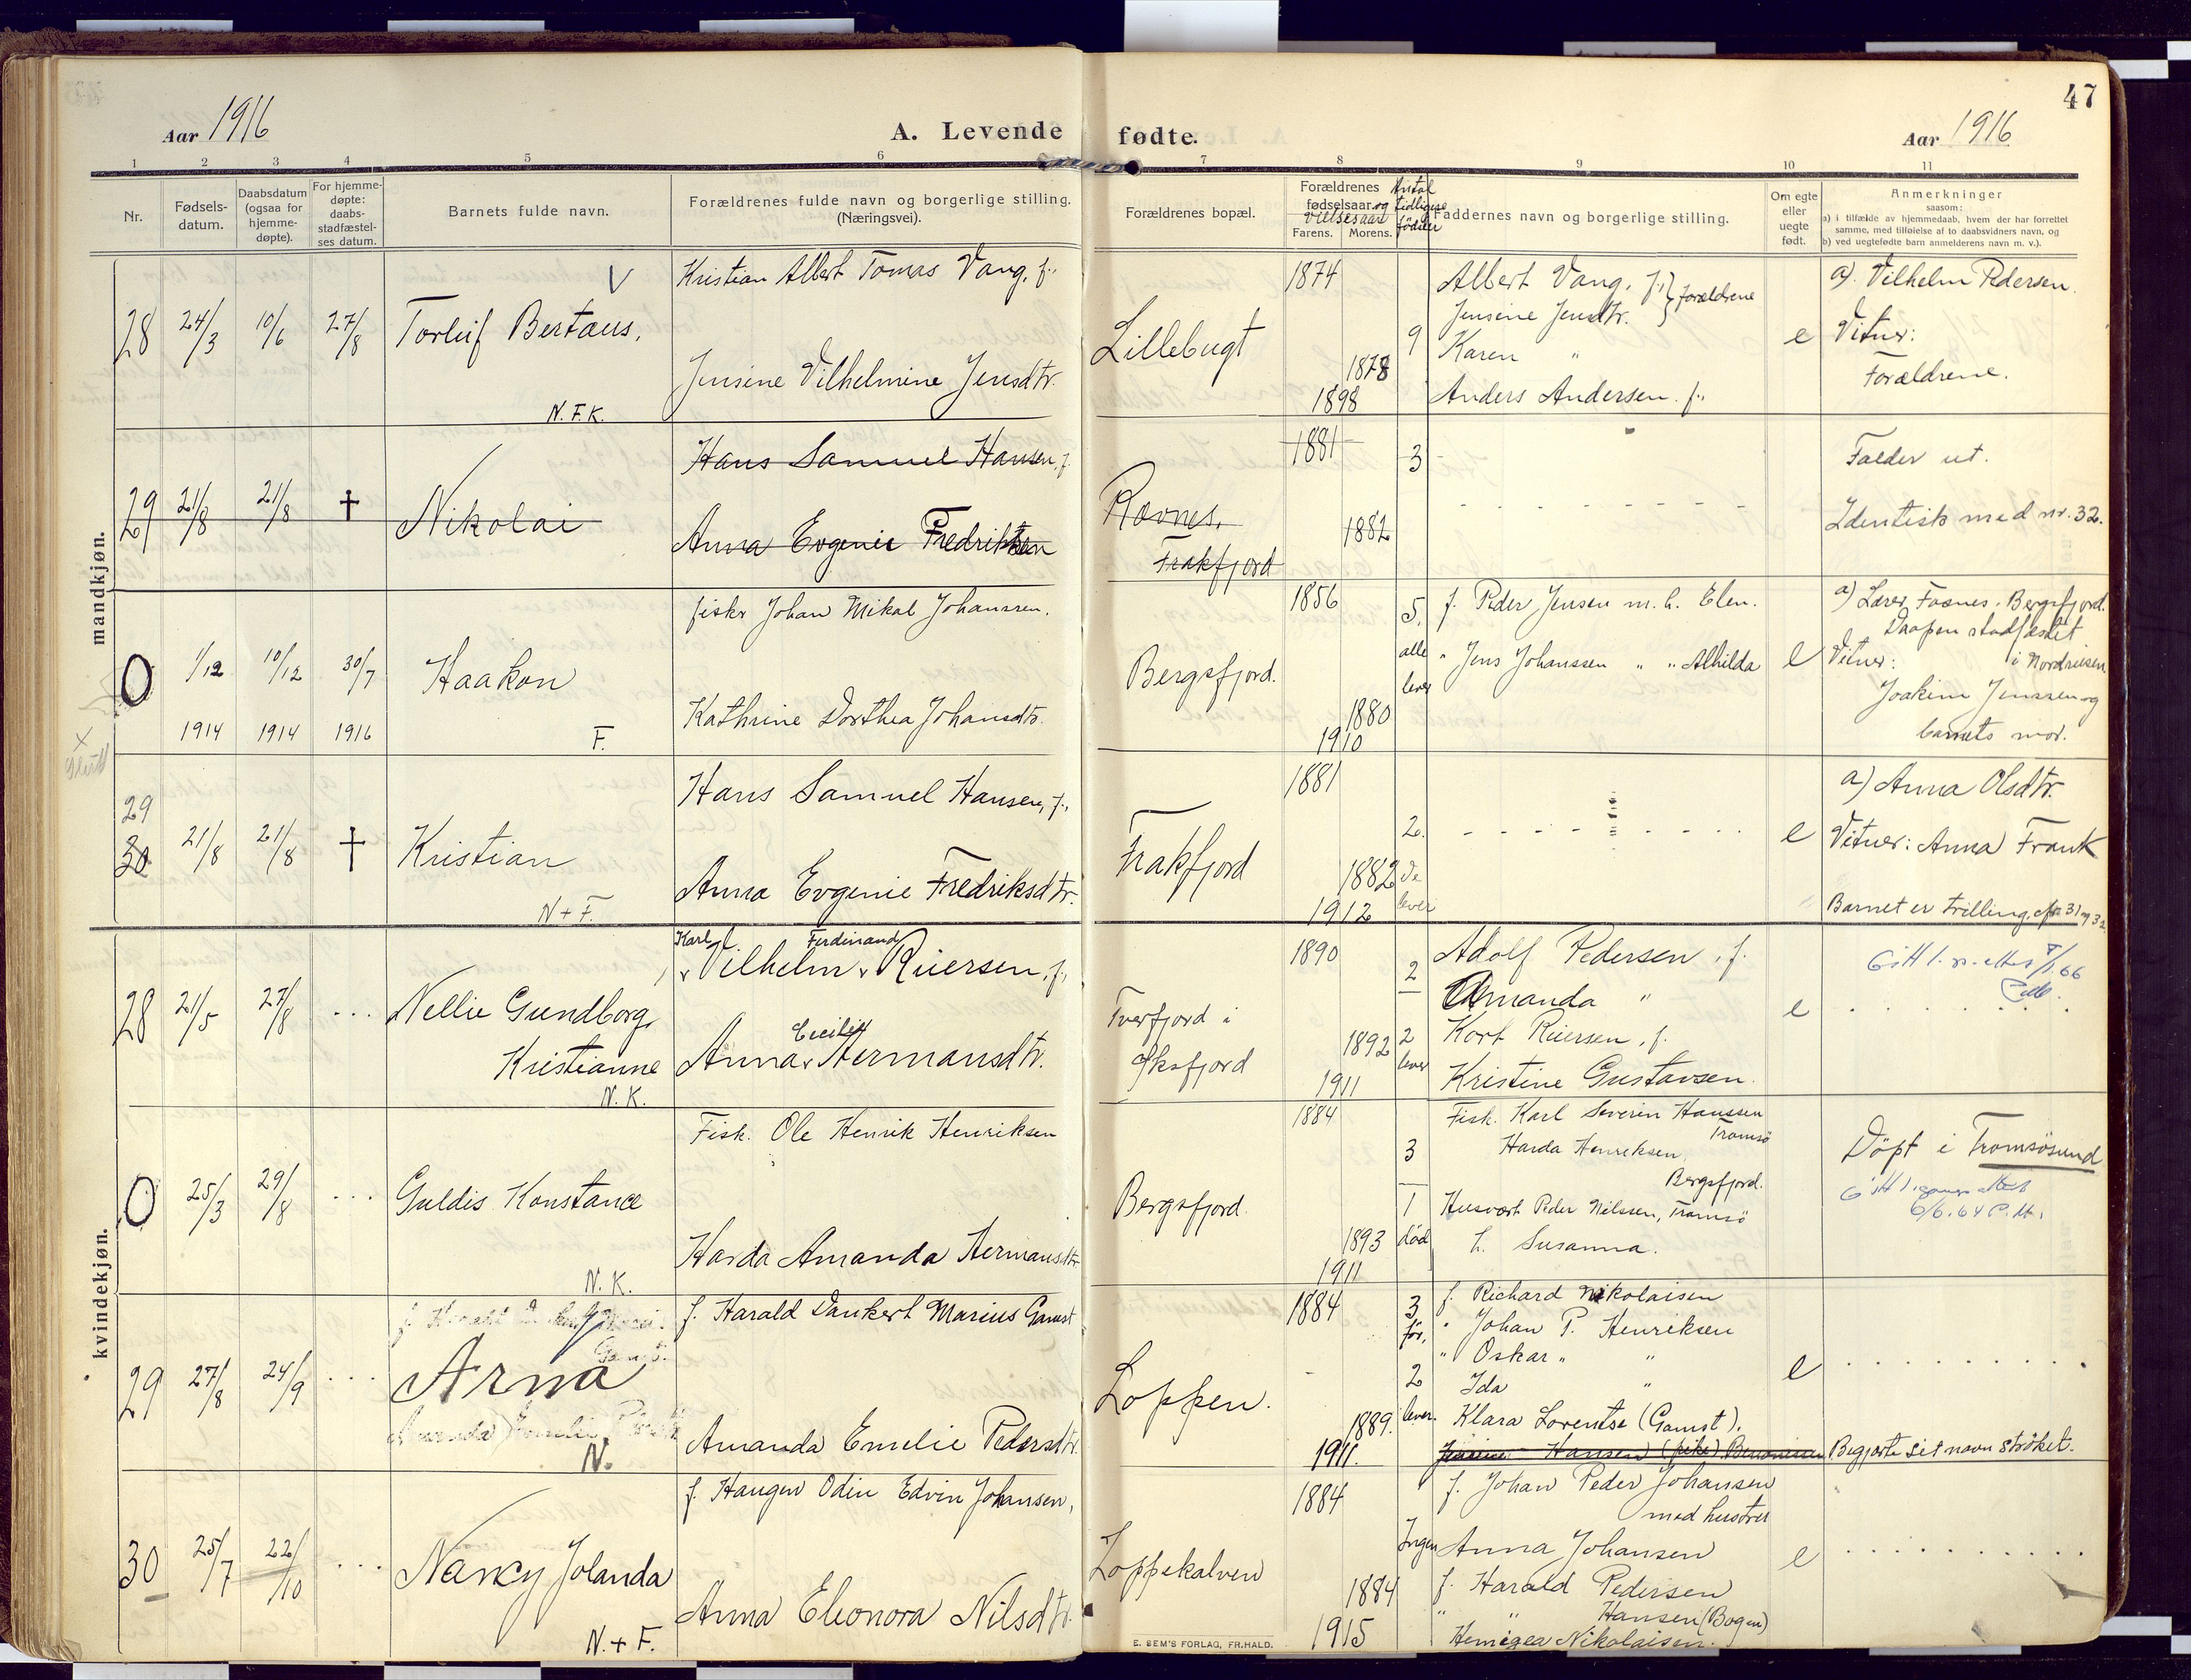 47
Aar 1916
A. Levende fødte.
Aar 1916
1 2 3 4 5 6 7 8 9 10 11
Nr.
Fødsels-
datum.
Daabsdatum
(ogsaa for
hjemme-
døpte).
For hjemme-
døpte:
daabs-
stadfæstel-
ses datum.
Barnets fulde navn.
Forældrenes fulde navn og borgerlige stilling.
(Næringsvei).
Forældrenes bopæl.
Forældrenes
fødselsaar og
vielsesaar
Farens. Morens.
Antal
tidligere
födsler
Faddernes navn og borgerlige stilling.
Om egte
eller
uegte
født.
Anmerkninger
saasom:
a) i tilfælde av hjemmedaab, hvem der har forrettet
samme, med tilføielse af to daabsvidners navn, og
b) ved uegtefødte barn anmelderens navn m. v.).
mandkjøn.
28 24/3 10/6 27/8
V
Torleif Bertæus.
N.F.K.
Kristian Albert Tomas Vang, f.
Jensine Vilhelmine Jensdtr.
Lillebugt
1874
1878
1898
9
Albert Vang, f.
Jensine Jensdtr. } forældrene
Karen "
Anders Andersen f.
e
a). Vilhelm Pedersen.
Vitner:
Forældrene.
29 21/8 21/8 †
Nikolai
Hans Samuel Hansen, f.
Anna Evgenie Fredriksen
Ravnes,
Frakfjord
1881
1882
3
Falder ut.
Identisk med nr. 32.
0 1/12 10/12 30/7
1914 1914 1916
Haakon
F.
fisker Johan Mikal Johanssen.
Kathrine Dorthea Johansdtr.
Bergsfjord.
1856
1880
1910
5,
alle
lever
f. Peder Jensen m. h. Elen.
" Jens Johanssen " " Alhilda
e
a) Lærer Fosnes. Bergsfjord.
Daapen stadfæstet
Vitner: i Nordreisen
Joakim Jenssen og
barnets mor.
29
30 21/8 21/8 †
Kristian
N + F.
Hans Samuel Hansen, f.
Anna Evgenie Fredriksdtr.
Frakfjord
1881
1882
1912
2.
de
lever
e
a) Anna Olsdtr.
Vitner: Anna Frank
Barnet er trilling, cfr. 31 og 32
kvindekjøn.
28 21/5 27/8 ...
Nellie Gundborg
Kristianne
N. K.
Karl Ferdinand
Vilhelm Riiersen, f.
Cecilie
Anna Hermansdtr.
Tverfjord i
Øksfjord
1890
1892
1911
2
2
lever
Adolf Pedersen, f.
Amanda "
Kort Riiersen, f.
Kristine Gustavsen.
e
0 25/3 29/8 ...
Guldis Konstance
N. K.
Fisk. Ole Henrik Henriksen
Harda Amanda Hermansdtr.
Bergsfjord.
1884
1893
1911
3
1
død
Fisk. Karl Severin Hanssen
Tromsö
Harda Henriksen,
Bergsfjord.
Husvært Peder Nilssen, Tromsö
h. Susanna.
Döpt i Tromsösund
6/6.64
29 27/8 24/9 ...
Arna
N.
f. Harald Dankert Marius Gamst
Amanda Emelie Pedersdtr.
Loppen.
1884
1889.
1911.
3
før,
2
lever.
f. Richard Nikolaisen
" Johan P. Henriksen
" Oskar " "
Ida "
Klara Lorentse (Gamst).
e
Begjærte sit navn strøket.
30 25/7 22/10 ...
Nancy Jolanda
N. + F.
f. Haugen Odin Edvin Johansen,
Anna Eleonora Nilsdtr.
Loppekalven
1884
1884
1915
Ingen
f. Johan Peder Johansen
med hustru
Anna Johansen
f. Harald Pedersen
" " Hansen (Bogen)
Nikolaisen.
e
E. SEM'S FORLAG, FR.HALD.